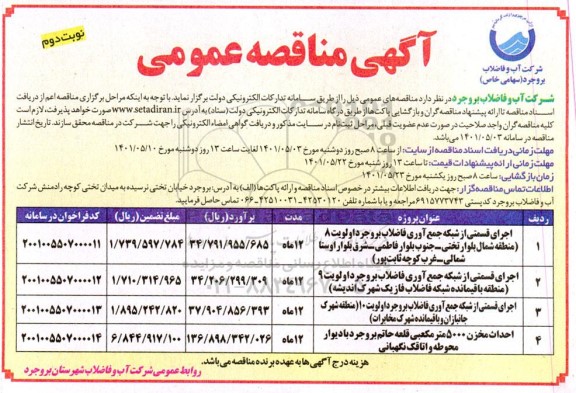 نوبت دوم
آگهی مناقصه عمومی
شرکت آب و فاضلاب
بروجرد (سهامی خاص)
شرکت آب و فاضلاب بروجرد در نظر دارد مناقصه‌های عمومی ذیل را از طریق سامانه تدارکات الکترونیکی دولت برگزار نماید. با توجه به اینکه مراحل برگزاری مناقصه اعم از دریافت
اسناد مناقصه تا ارائه پیشنهاد مناقصه گران و بازگشایی پاکت‌ها از طریق درگاه سامانه تدارکات الکترونیکی دولت (ستاد) به آدرس www.setadiran.ir صورت خواهد پذیرفت، لازم است
کلیه مناقصه گران واجد صلاحیت در صورت عدم عضویت قبلی، مراحل ثبت نام در سایت مذکور و دریافت گواهی امضاء الکترونیکی را جهت شرکت در مناقصه محقق سازند. تاریخ انتشار
مناقصه در سامانه ۱۴۰۱/۰۵/۰۳ می‌باشد.
مهلت زمانی دریافت اسناد مناقصه از سایت: از ساعت ۸ صبح روز دوشنبه مورخ ۱۴۰۱/۰۵/۰۳ لغایت ساعت ۱۳ روز دوشنبه مورخ ۱۴۰۱/۰۵/۱۰
مهلت زمانی ارائه پیشنهادات قیمت: تا ساعت ۱۳ روز شنبه مورخ ۱۴۰۱/۰۵/۲۲
زمان بازگشایی: ساعت ۸ صبح روز یکشنبه مورخ ۱۴۰۱/۰۵/۲۳
اطلاعات تماس مناقصه گزار: جهت دریافت اطلاعات بیشتر در خصوص اسناد مناقصه و ارائه پاکت‌ها (الف) به آدرس: بروجرد خیابان تختی نرسیده به میدان تختی کوچه رادمنش شرکت
آب و فاضلاب بروجرد کدپستی ۶۹۱۵۷۷۳۷۴۳ مراجعه و یا با شماره تلفن ۴۲۵۳۰۱۲۰-۴۲۵۱۰۰۳۱-۰۶۶ تماس حاصل فرمایید.
ردیف عنوان پروژه مدت برآورد (ریال) مبلغ تضمین (ریال) کد فراخوان در سامانه
۱ اجرای قسمتی از شبکه جمع آوری فاضلاب بروجرد اولویت ۸
(منطقه شمال بلوار تختی-جنوب بلوار فاطمی-شرق بلوار اوستا
شمالی-غرب کوچه ثابت پور) ۱۲ماه ۳۴/۷۹۱/۹۵۵/۶۸۵ ۱/۷۳۹/۵۹۷/۷۸۴ ۲۰۰۱۰۰۵۵۰۷۰۰۰۰۱۱
۲ اجرای قسمتی از شبکه جمع آوری فاضلاب بروجرد اولویت ۹
(منطقه باقیمانده شبکه فاضلاب فاز یک شهرک اندیشه) ۱۲ماه ۳۴/۲۰۶/۲۹۹/۳۰۹ ۱/۷۱۰/۳۱۴/۹۶۵ ۲۰۰۱۰۰۵۵۰۷۰۰۰۰۱۲
۳ اجرای قسمتی از شبکه جمع آوری فاضلاب بروجرد اولویت ۱۰ (منطقه شهرک
جانبازان و باقیمانده شهرک مخابرات) ۱۲ماه ۳۷/۹۰۴/۸۵۶/۳۹۳ ۱/۸۹۵/۲۴۲/۸۲۰ ۲۰۰۱۰۰۵۵۰۷۰۰۰۰۱۳
۴ احداث مخزن ۵۰۰۰ متر مکعبی قلعه حاتم بروجرد با دیوار
محوطه و اتاقک نگهبانی ۱۲ماه ۱۳۶/۸۹۸/۳۴۲/۰۲۶ ۶/۸۴۴/۹۱۷/۱۰۰ ۲۰۰۱۰۰۵۵۰۷۰۰۰۰۱۴
هزینه درج آگهی ها به عهده برنده مناقصه می‌باشد.
روابط عمومی شرکت آب و فاضلاب شهرستان بروجرد